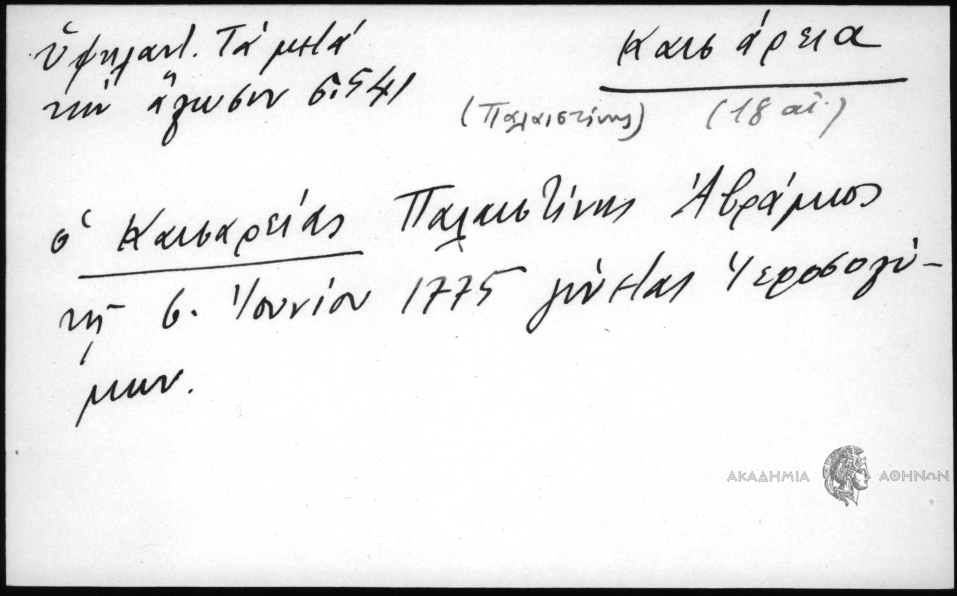 Ὑψηλαντ. Τὰ μετὰ
τὴν ἅλωσιν σ. 541
Καισάρεια
(Παλαιστίνης) (18 αἰ.)
ὁ Καισαρείας Παλαιστίνης Ἀβράμιος
τῇ 6. Ἰουνίου 1775 γίνεται Ἱεροσολύ-
μων.
ΑΚΑΔΗΜΙΑ ΑΘΗΝΩΝ